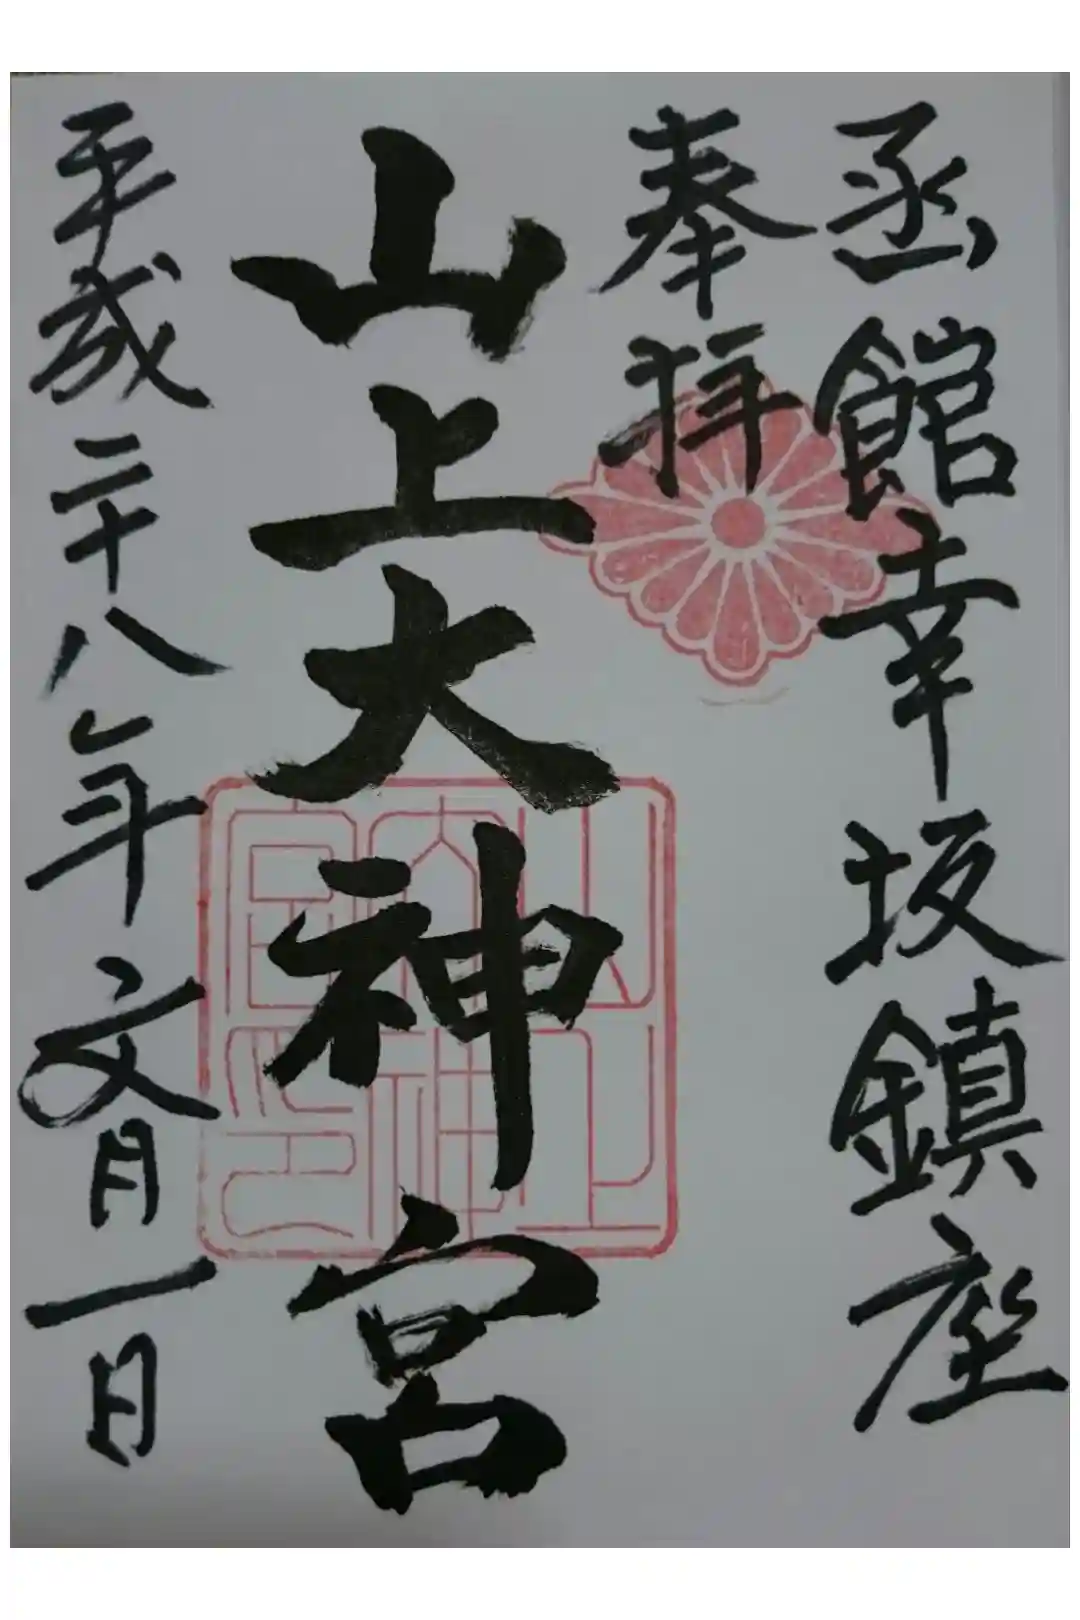 函館幸坂鎮座
奉拝
山上大神宮
平成二十八年文月一日
山上大神宮印